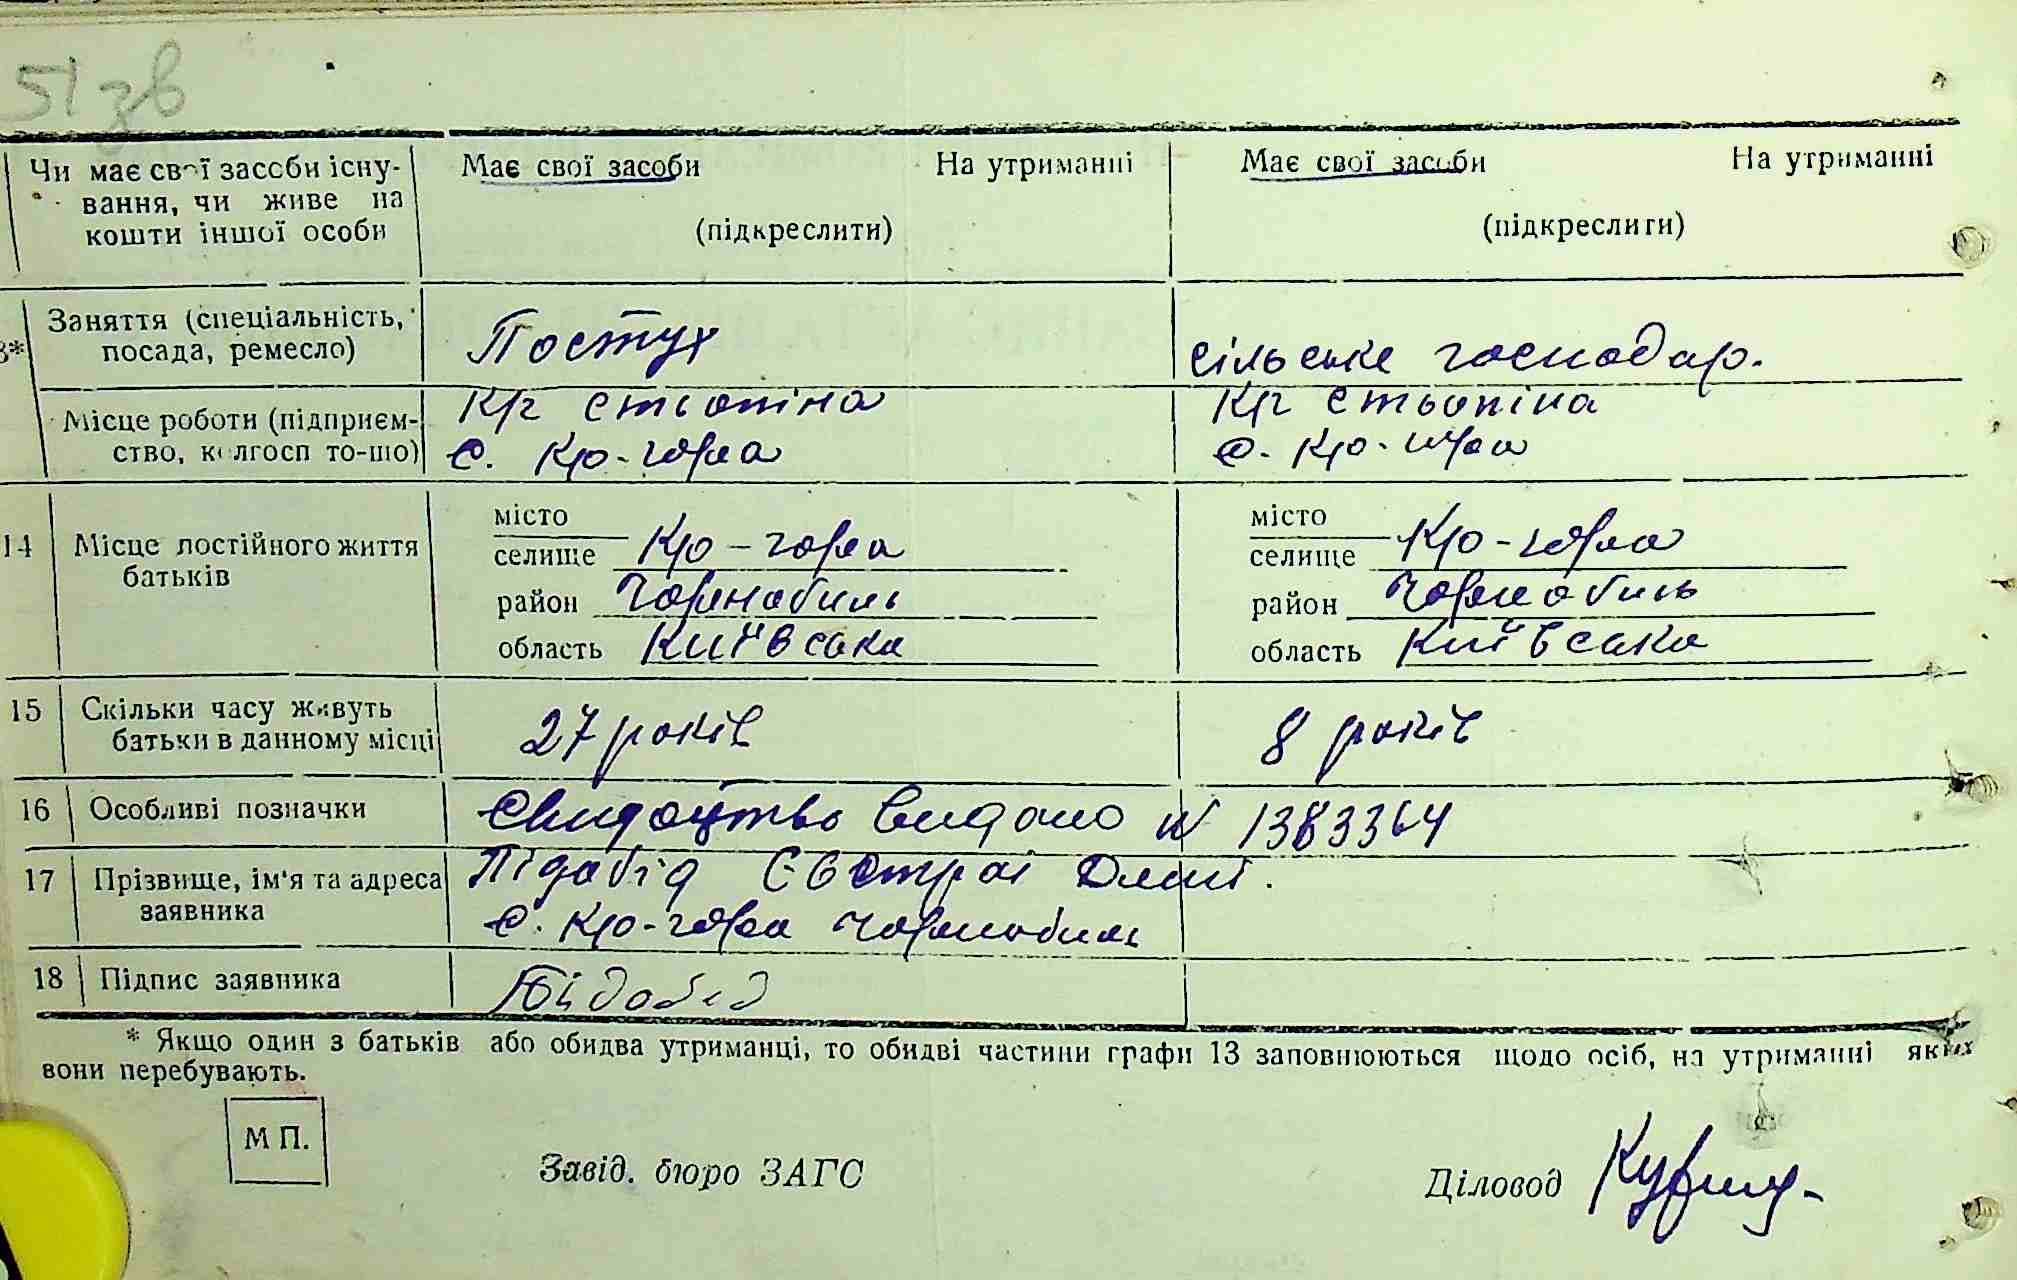 51 зв
Чи має свої засоби існу-
вання, чи живе на
кошти іншої особи
Має свої засоби На утриманні
(підкреслити)
Має свої засоби На утриманні
(підкреслити)
3*
Заняття (спеціальність,
посада, ремесло)
Постух
сільське господар.
Місце роботи (підприєм-
ство, колгосп то-що)
Крг Стьопіна
с. Кро-гора
Крг Стьопіна
с. Кро-гора
14 Місце постійного життя
батьків
місто
селище Кро-гора
район Чорнобиль
область Київська
місто
селище Кро-гора
район Чорнобиль
область Київська
15 Скільки часу живуть
батьки в данному місці
27 років
8 років
16 Особливі позначки
Свидоцтво видано № 1383364
17 Прізвище, ім'я та адреса
заявника
Підабід Євстрат
с. Кро-гора Чорнобиль
18 Підпис заявника
Підобід
* Якщо один з батьків або обидва утриманці, то обидві частини графи 13 заповнюються щодо осіб, на утриманні яких
вони перебувають.
М П.
Завід. бюро ЗАГС
Діловод